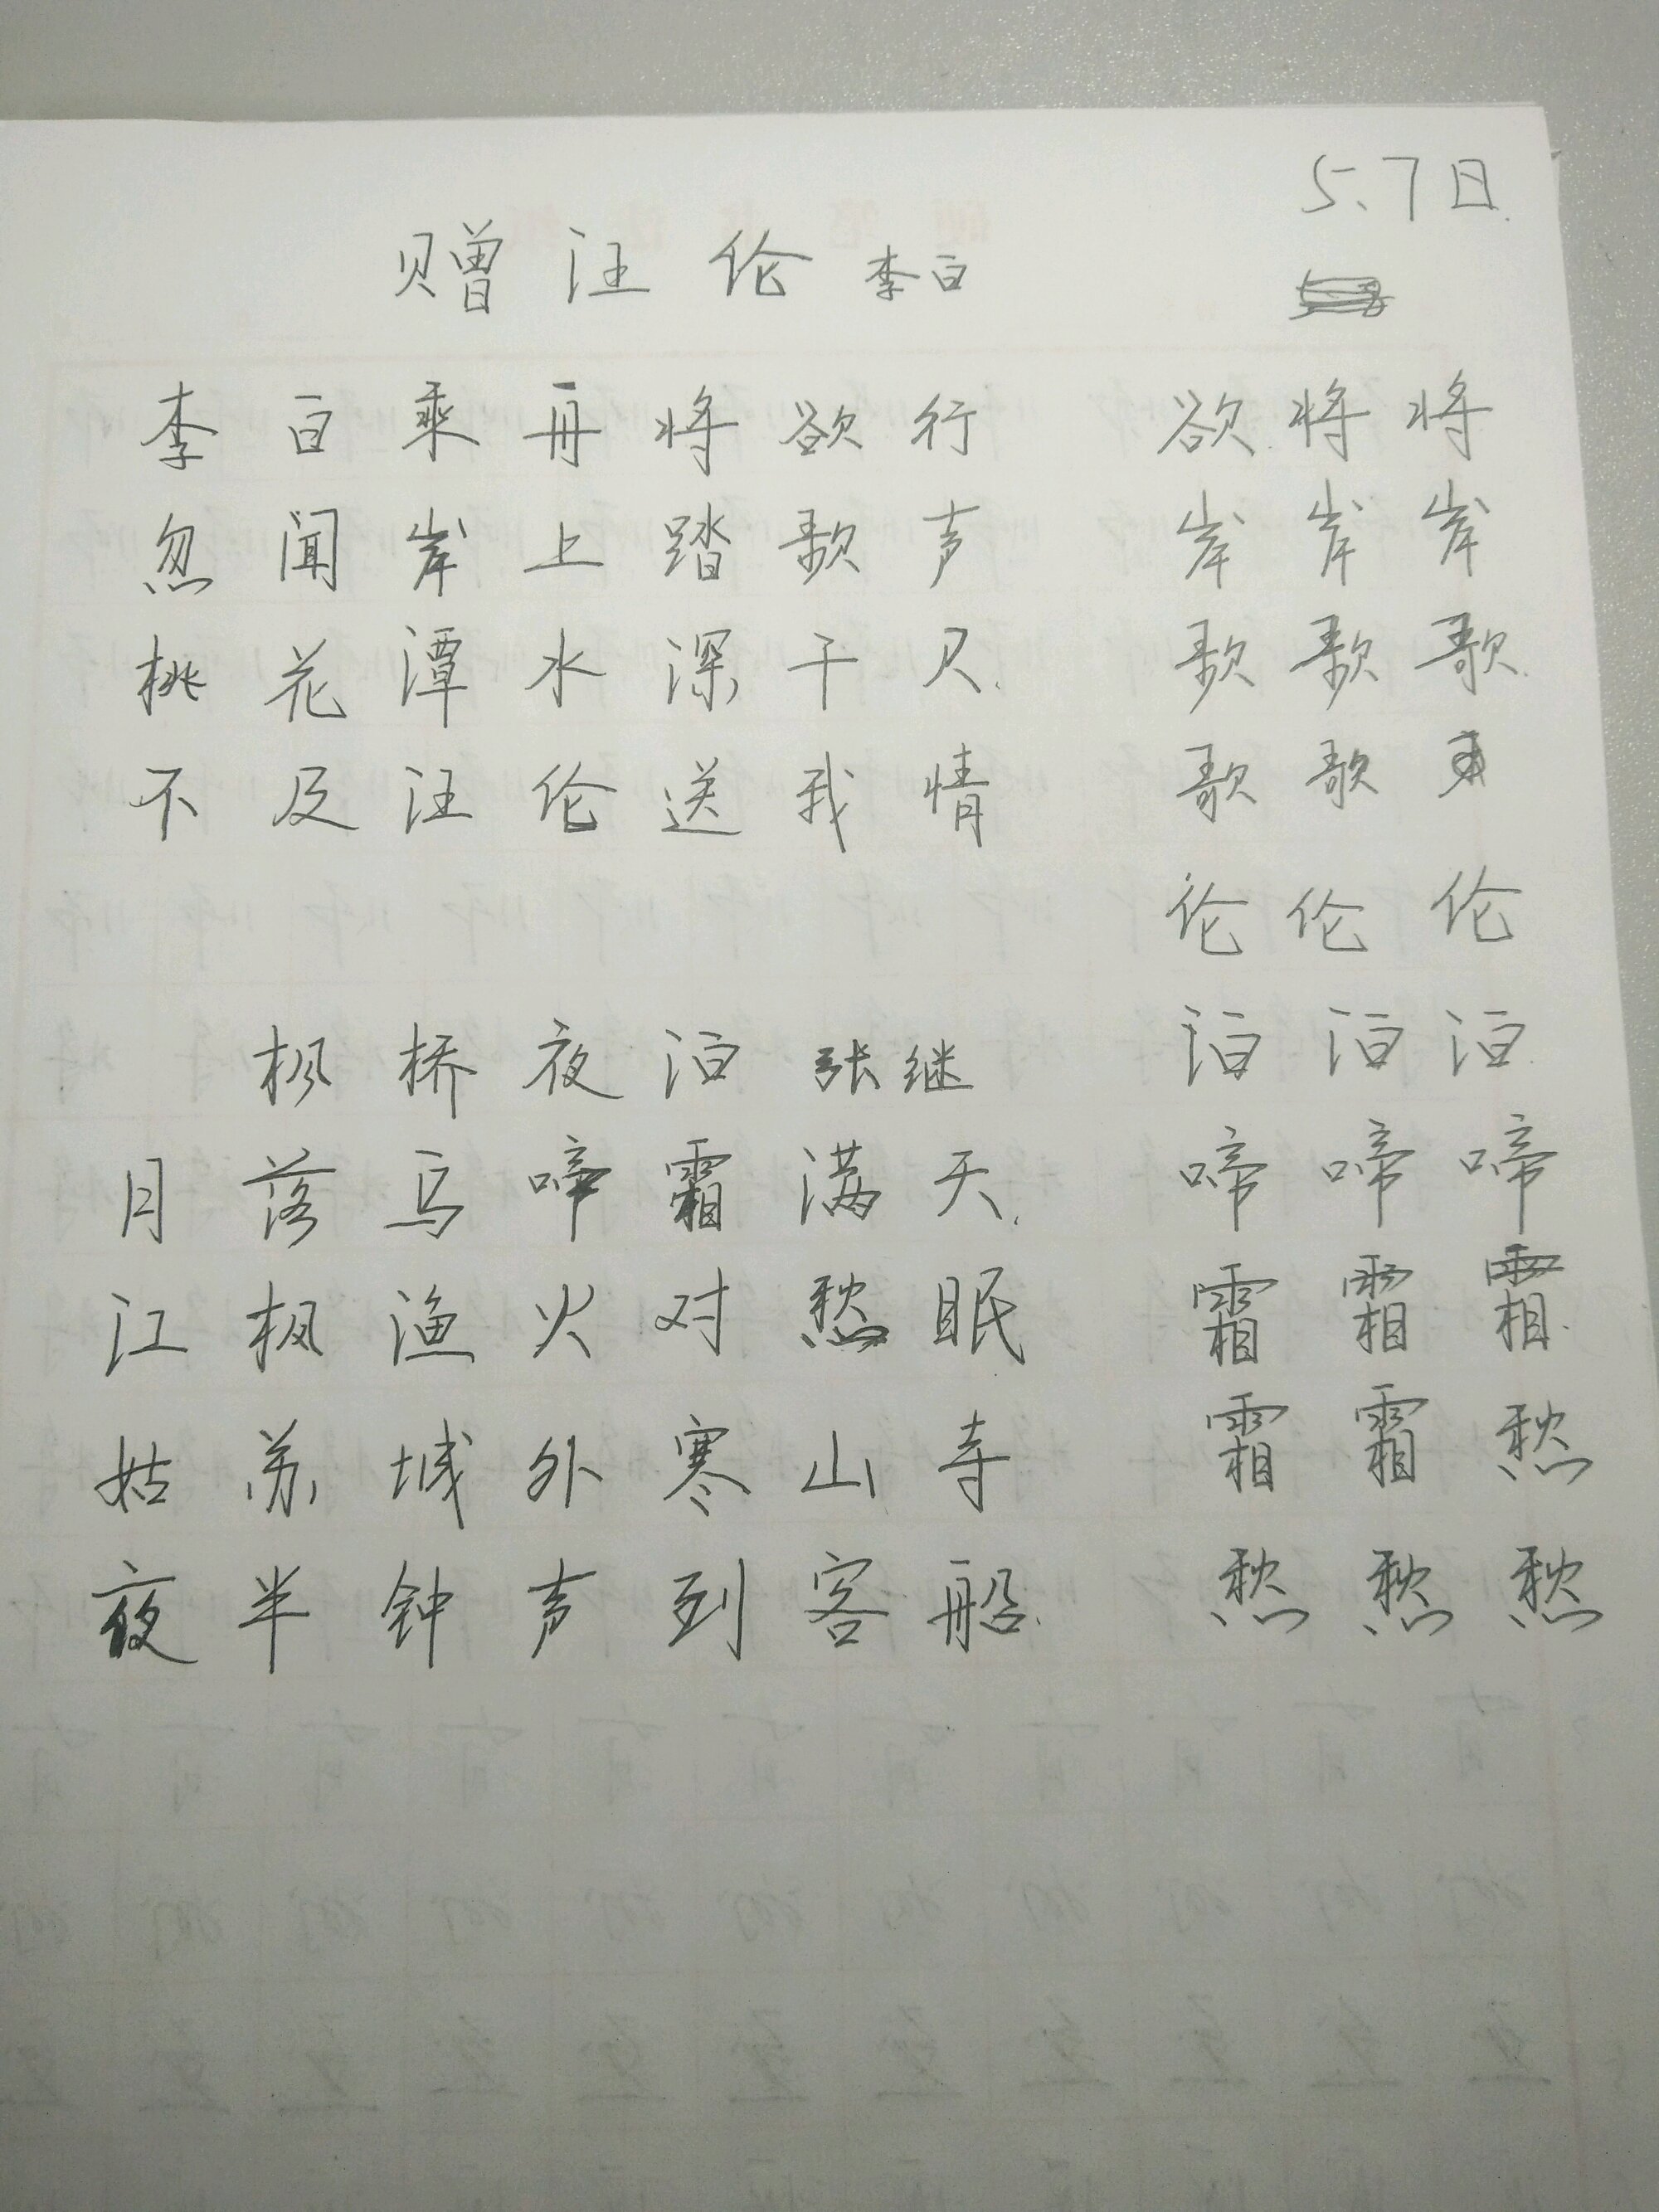 5.7日
赠汪伦 李白
李白乘舟将欲行 欲将将
忽闻岸上踏歌声 岸岸岸
桃花潭水深千尺 歌歌歌
不及汪伦送我情 歌歌
伦伦伦
枫桥夜泊 张继 泊泊泊
月落乌啼霜满天 啼啼啼
江枫渔火对愁眠 霜霜霜
姑苏城外寒山寺 霜霜愁
夜半钟声到客船 愁愁愁